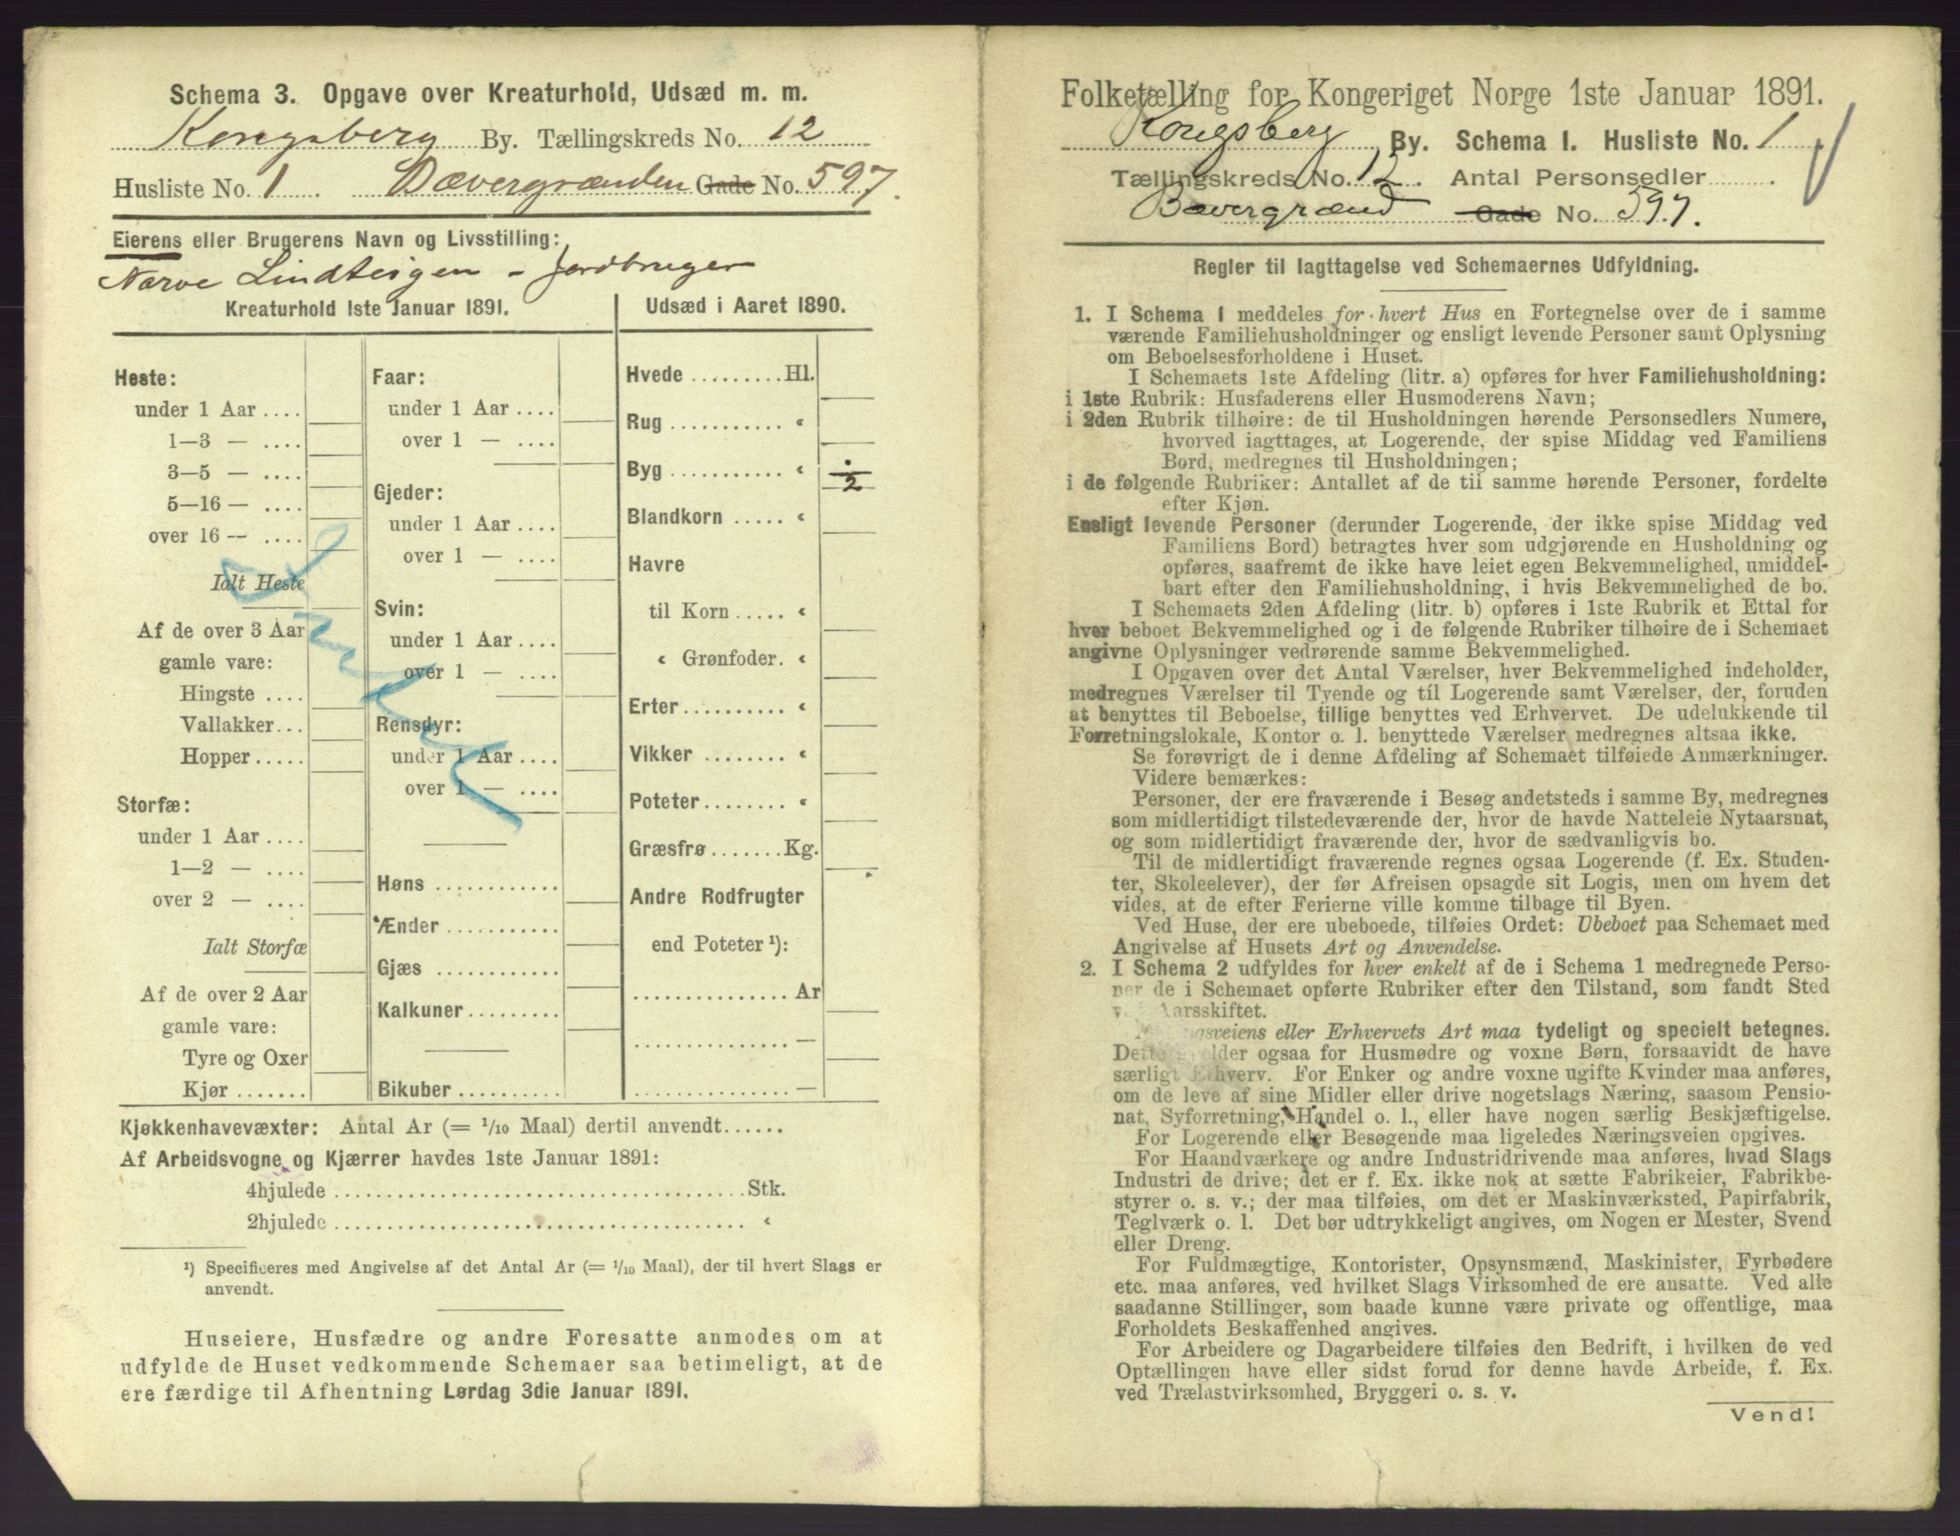 Schema 3. Opgave over Kreaturhold, Udsæd m. m.
Kongsberg By. Tællingskreds No. 12
Husliste No. 1 Bævergrænden Gade No. 597.
Eierens eller Brugerens Navn og Livsstilling:
Narve Lindteigen - Jordbruger
Kreaturhold 1ste Januar 1891.
Heste:
under 1 Aar ....
1—3 — ....
3—5 — ....
5—16 — ....
over 16 — ....
Ialt Heste
Af de over 3 Aar
gamle vare:
Hingste ....
Vallakker...
Hopper.....
Storfæ:
under 1 Aar ....
1—2 — ....
over 2 — ....
Ialt Storfæ
Af de over 2 Aar
gamle vare:
Tyre og Oxer
Kjør .......
Faar:
under 1 Aar ....
over 1 — ....
Gjeder:
under 1 Aar ....
over 1 — ....
Svin:
under 1 Aar ....
over 1 — ....
Rensdyr:
under 1 Aar ....
over 1 — ....
Høns ............
Ænder ...........
Gjæs ............
Kalkuner.........
Bikuber ..........
Udsæd i Aaret 1890.
Hvede .........Hl.
Rug ........... «
Byg ........... « 2
Blandkorn ..... «
Havre
til Korn ..... «
« Grønfoder. «
Erter.......... «
Vikker ........ «
Poteter........ «
Græsfrø.......Kg.
Andre Rodfrugter
end Poteter ¹):
............... Ar
............... —
............... —
Kjøkkenhavevæxter: Antal Ar (= 1/10 Maal) dertil anvendt......
Af Arbeidsvogne og Kjærrer havdes 1ste Januar 1891:
4hjulede .......................................Stk.
2hjulede ....................................... «
¹) Specificeres med Angivelse af det Antal Ar (= 1/10 Maal), der til hvert Slags er
anvendt.
Huseiere, Husfædre og andre Foresatte anmodes om at
udfylde de Huset vedkommende Schemaer saa betimeligt, at de
ere færdige til Afhentning Lørdag 3die Januar 1891.
Folketælling for Kongeriget Norge 1ste Januar 1891.
Kongsberg By. Schema I. Husliste No. 1
Tællingskreds No. 12. Antal Personsedler .
Bævergrænd Gade No. 597.
Regler til Iagttagelse ved Schemaernes Udfyldning.
1. I Schema 1 meddeles for hvert Hus en Fortegnelse over de i samme
værende Familiehusholdninger og ensligt levende Personer samt Oplysning
om Beboelsesforholdene i Huset.
I Schemaets 1ste Afdeling (litr. a) opføres for hver Familiehusholdning:
i 1ste Rubrik: Husfaderens eller Husmoderens Navn;
i 2den Rubrik tilhøire: de til Husholdningen hørende Personsedlers Numere,
hvorved iagttages, at Logerende, der spise Middag ved Familiens
Bord, medregnes til Husholdningen;
i de følgende Rubriker: Antallet af de til samme hørende Personer, fordelte
efter Kjøn.
Ensligt levende Personer (derunder Logerende, der ikke spise Middag ved
Familiens Bord) betragtes hver som udgjørende en Husholdning og
opføres, saafremt de ikke have leiet egen Bekvemmelighed, umiddel-
bart efter den Familiehusholdning, i hvis Bekvemmelighed de bo.
I Schemaets 2den Afdeling (litr. b) opføres i 1ste Rubrik et Ettal for
hver beboet Bekvemmelighed og i de følgende Rubriker tilhøire de i Schemaet
angivne Oplysninger vedrørende samme Bekvemmelighed.
I Opgaven over det Antal Værelser, hver Bekvemmelighed indeholder,
medregnes Værelser til Tyende og til Logerende samt Værelser, der, foruden
at benyttes til Beboelse, tillige benyttes ved Erhvervet. De udelukkende til
Forretningslokale, Kontor o. l. benyttede Værelser medregnes altsaa ikke.
Se forøvrigt de i denne Afdeling af Schemaet tilføiede Anmærkninger.
Videre bemærkes:
Personer, der ere fraværende i Besøg andetsteds i samme By, medregnes
som midlertidigt tilstedeværende der, hvor de havde Natteleie Nytaarsnat,
og som midlertidigt fraværende der, hvor de sædvanligvis bo.
Til de midlertidigt fraværende regnes ogsaa Logerende (f. Ex. Studen-
ter, Skoleelever), der før Afreisen opsagde sit Logis, men om hvem det
vides, at de efter Ferierne ville komme tilbage til Byen.
Ved Huse, der ere ubeboede, tilføies Ordet: Ubeboet paa Schemaet med
Angivelse af Husets Art og Anvendelse.
2. I Schema 2 udfyldes for hver enkelt af de i Schema 1 medregnede Perso-
ner de i Schemaet opførte Rubriker efter den Tilstand, som fandt Sted
Aarsskiftet.
eller Erhvervets Art maa tydeligt og specielt betegnes.
ogsaa for Husmødre og voxne Børn, forsaavidt de have
særligt Erhverv. For Enker og andre voxne ugifte Kvinder maa anføres,
om de leve af sine Midler eller drive nogetslags Næring, saasom Pensio-
nat, Syforretning, Handel o. l., eller have nogen særlig Beskjæftigelse.
For Logerende eller Besøgende maa ligeledes Næringsveien opgives.
For Haandværkere og andre Industridrivende maa anføres, hvad Slags
Industri de drive; det er f. Ex. ikke nok at sætte Fabrikeier, Fabrikbe-
styrer o. s. v.; der maa tilføies, om det er Maskinværksted, Papirfabrik,
Teglværk o. l. Det bør udtrykkeligt angives, om Nogen er Mester, Svend
eller Dreng.
For Fuldmægtige, Kontorister, Opsynsmænd, Maskinister, Fyrbødere
etc. maa anføres, ved hvilket Slags Virksomhed de ere ansatte. Ved alle
saadanne Stillinger, som baade kunne være private og offentlige, maa
Forholdets Beskaffenhed angives.
For Arbeidere og Dagarbeidere tilføies den Bedrift, i hvilken de ved
Optællingen have eller sidst forud for denne havde Arbeide, f. Ex.
ved Trælastvirksomhed, Bryggeri o. s. v.
Vend!